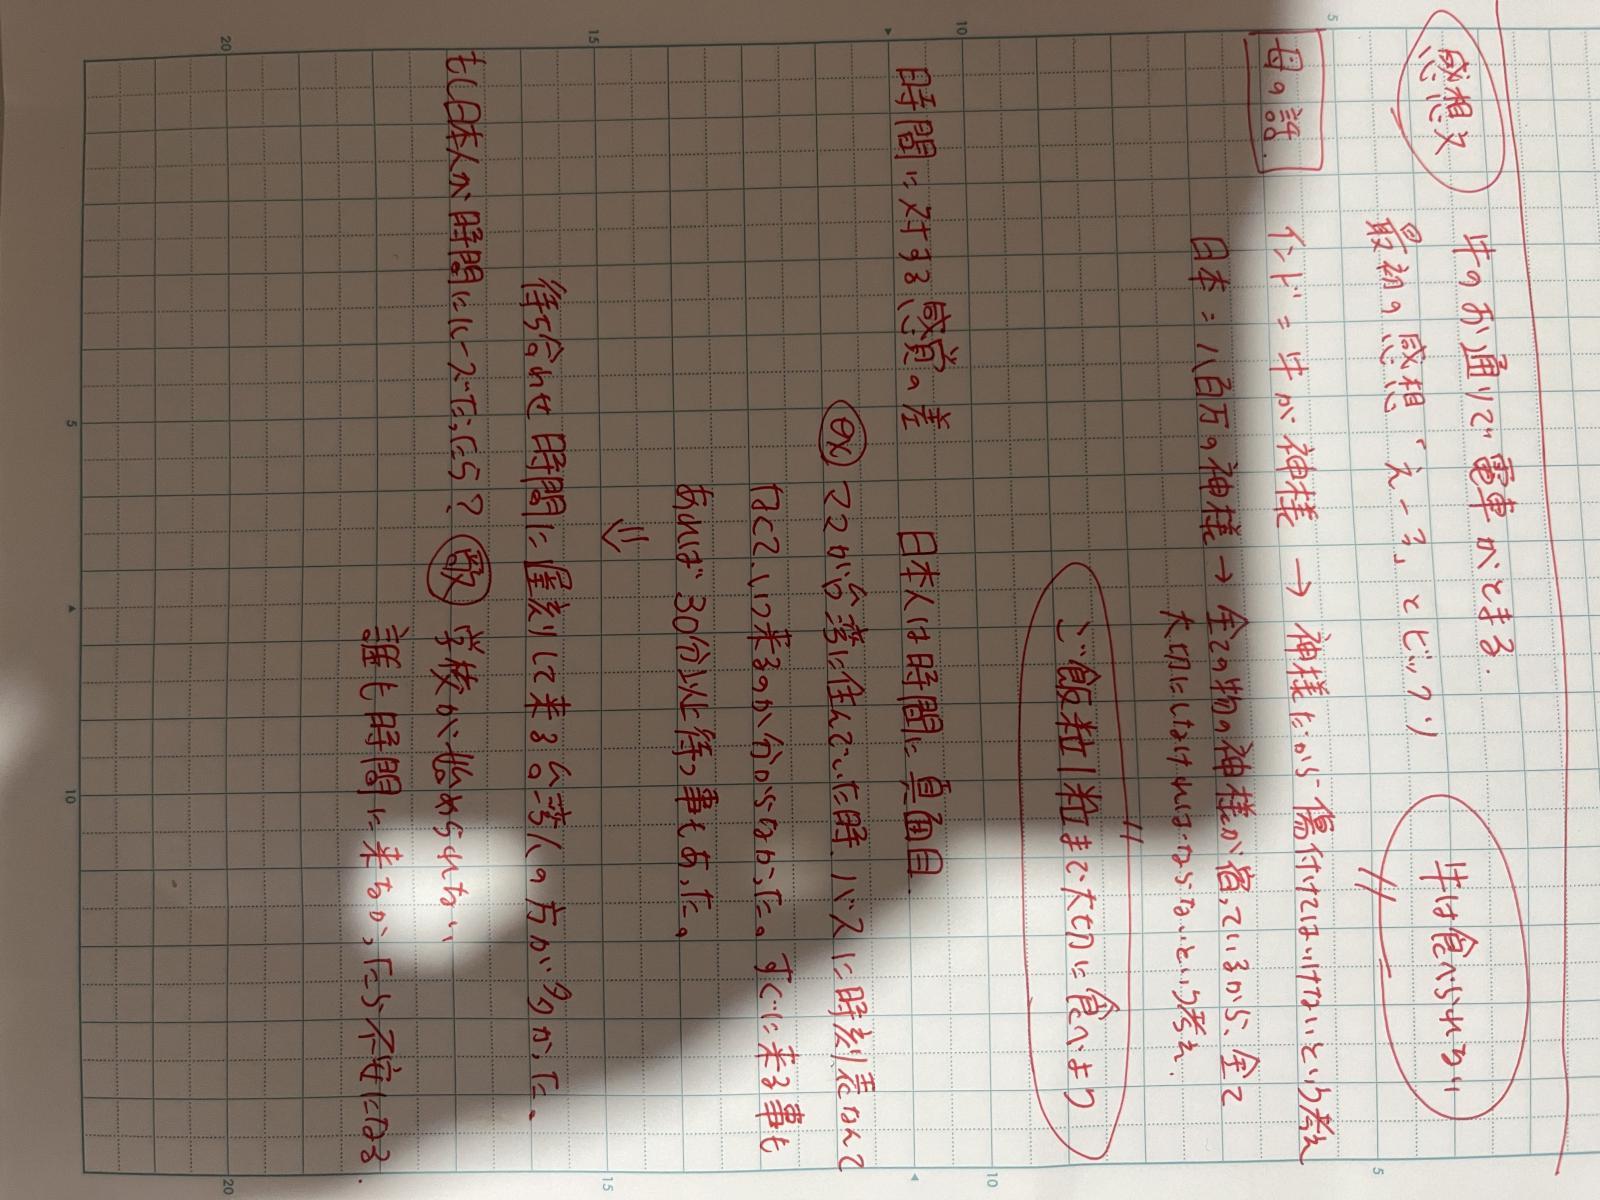 感想文
牛のお通りで電車がとまる.
最初の感想「えーー!!」とビックリ
牛は食べられない
母の話.
インド = 牛が神様 → 神様だから傷付けてはいけないという考え
日本 = 八百万の神様 → 全ての物の神様が宿っているから、全て
大切にしなければならないという考え.
ご飯粒1粒まで大切に食べよう
時間に対する感覚の差 日本人は時間に真面目.
ex ママが台湾に住んでいた時、バスに時刻表なんて
なくて、いつ来るのか分からなかった。すぐに来る事も
あれば30分以上待つ事もあった。
⇓
待ち合わせ時間に遅刻して来る台湾人の方が多かった。
もし日本人が時間にルーズだったら?
学校が始められない
誰も時間に来なかったら不安になる.
5
10
15
20
5
10
5
10
15
20